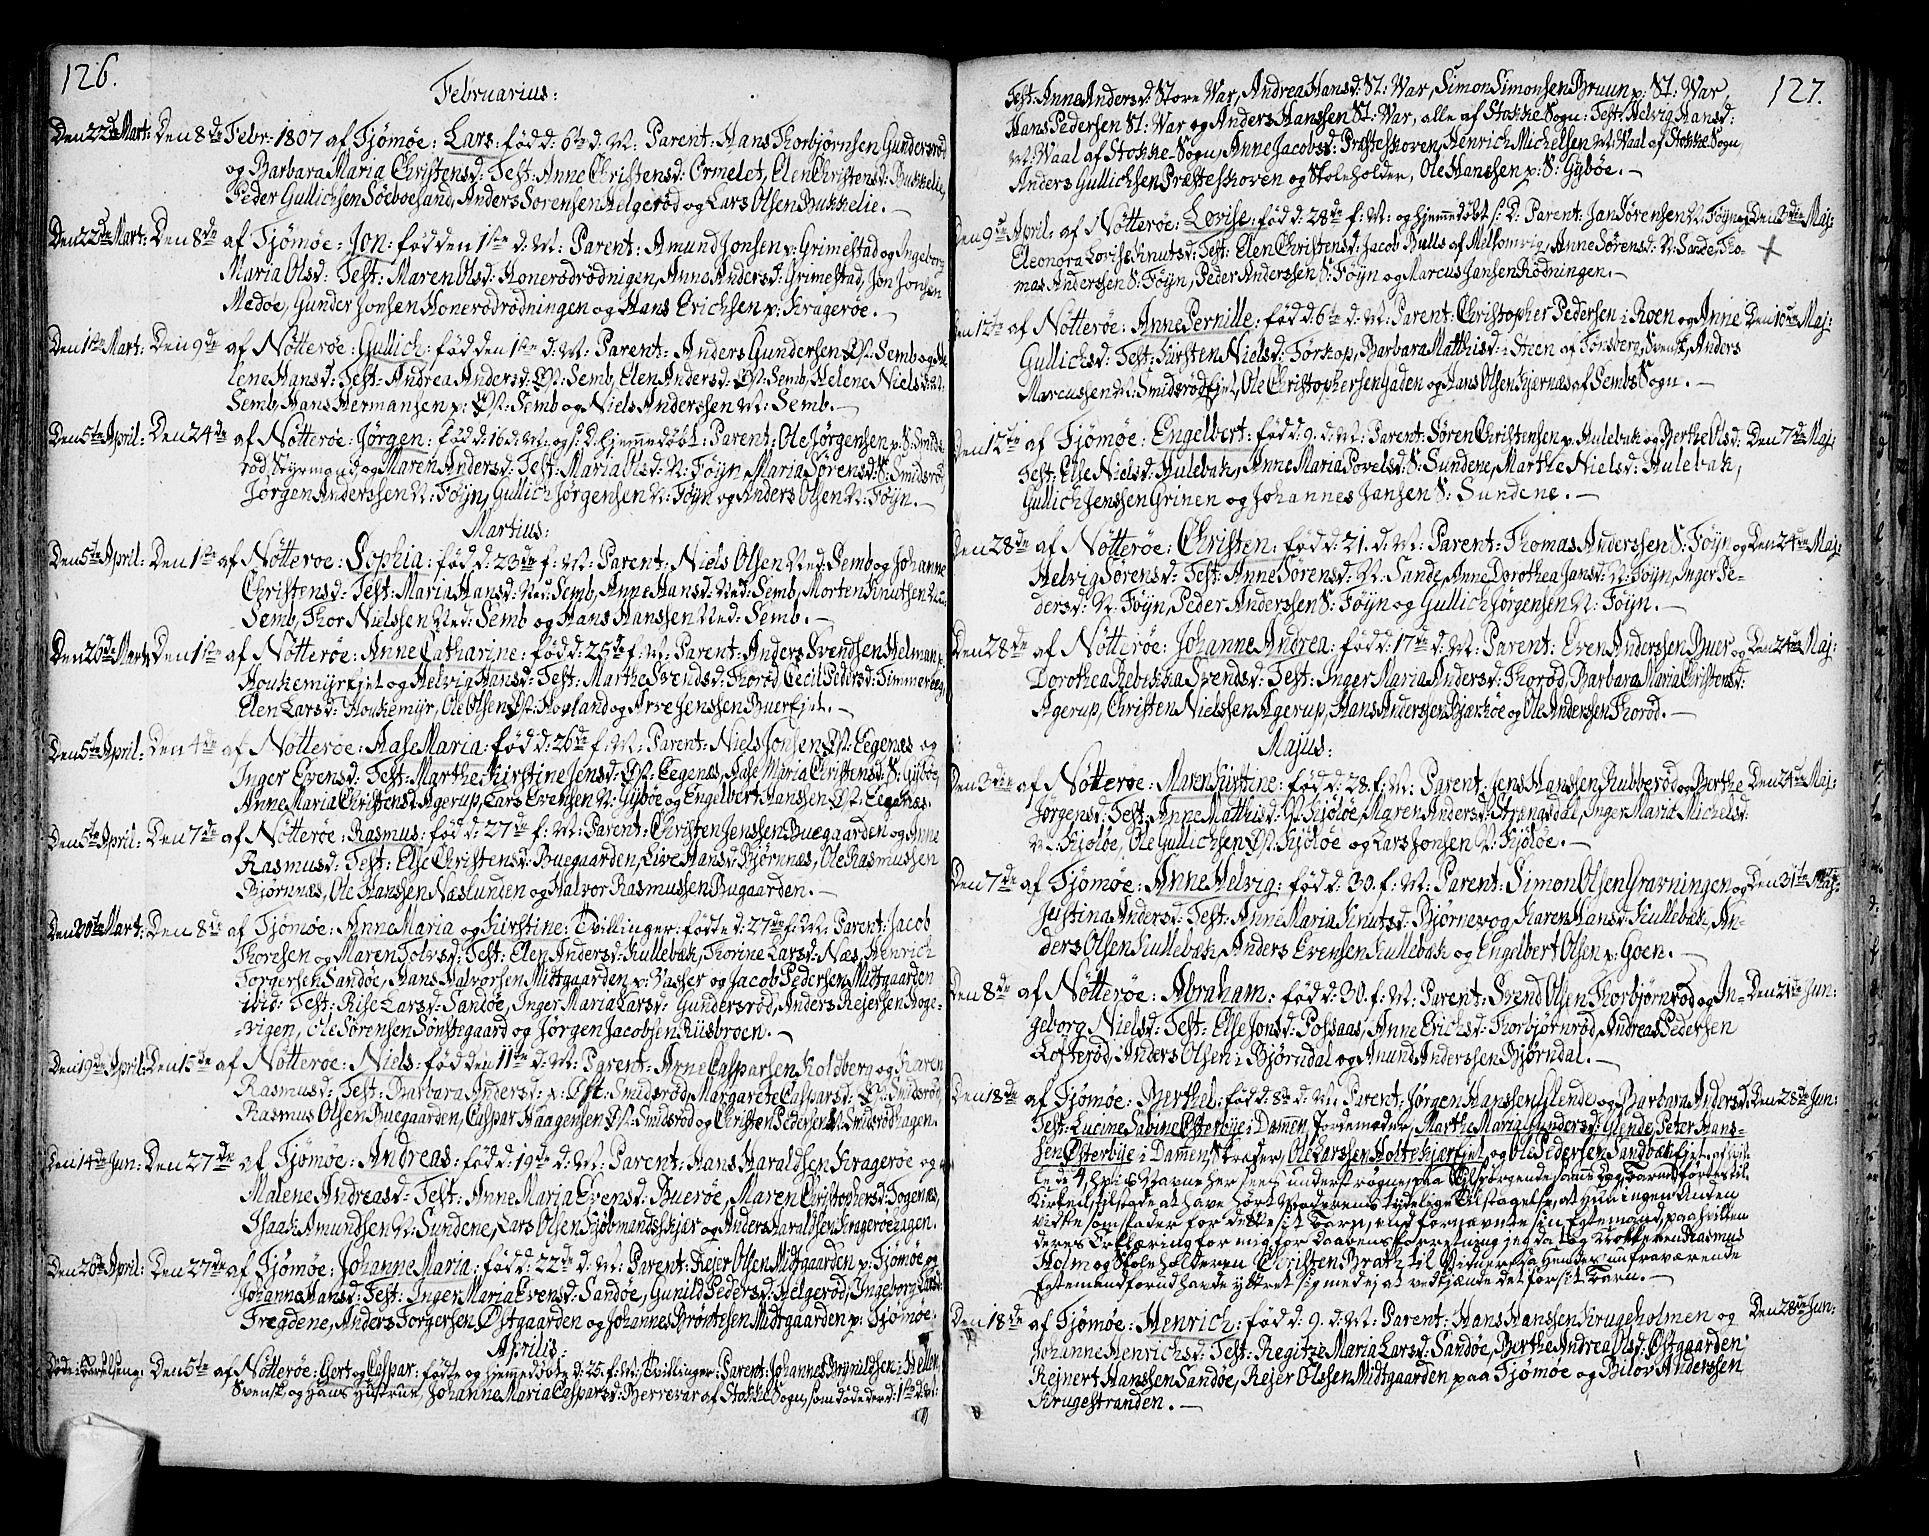 126.
Februarius:
Den 22de Mart: Den 8de Febr: 1807 af Tjømøe: Lars: fød d: 6te d: M: Parent: Hans Thorbjørnsen Gundersrød
og Barbara Maria Christensd: Test: Anne Christensd: Ormelet, Elen Christensd: Bukkelie,
Peder Gullichsen Søeboesand, Anders Sørensen Helgerød og Lars Olsen Bukkelie. —
Den 22de Mart: Den 8de af Tjømøe: Jon: fød den 1ste d: M: Parent: Amund Jonsen p: Grimestad og Ingeborg
Maria Olsd: Test: Maren Olsd: Honerødrødnigen, Anne Andersd: Grimestad, Jon Jonsen
Medøe, Gunder Jonsen Honerødrødningen og Hans Erichsen p: Kragerøe. —
Den 1ste Mart: Den 9de af Nøtterøe: Gullich: fød den 1ste d: M: Parent: Anders Gundersen Øst: Semb og
lene Hansd: Test: Andrea Andersd: Øst: Semb, Elen Andersd: Øst: Semb, Helene Nielsd:
Semb, Hans Hermansen p: Øst: Semb og Niels Anderssen M: Semb. —
Den 5te April: Den 24de af Nøtterøe: Jørgen: fød d: 16 d: M: og s: D: hjemmedøbt: Parent: Ole Jørgensen p: S: Smids-
rød, Styrmand og Maren Andersd: Test: Maria Olsd: N: Føyn, Maria Sørensd: S: Smidsrød,
Jørgen Anderssen N: Føyn, Gullich Jørgensen N: Føyn og Anders Olsen N: Føyn. —
Martius:
Den 5te April: Den 1ste af Nøtterøe: Sophia: fød d: 23de f: M: Parent: Niels Olsen Ned: Semb og Johanne
Christensd: Test: Maria Hansd: Ned: Semb, Anne Hansd: Ned: Semb, Morten Knutsen Ned:
Semb, Thor Nielssen Ned: Semb og Hans Hanssen Ned: Semb. —
Den 26de Mart: Den 1ste af Nøtterøe: Anne Catharine: fød d: 25de f: M: Parent: Anders Svendsen Helman p:
Houkemyrejet og Helvig Hansd: Test: Marthe Svendsd: Thorød, Cecil Pedersd:
Elen Larsd: Houkemyr, Ole Olsen Øst: Hovland og Arve Jenssen Buer Ejet. —
Den 5te April: Den 4de af Nøtterøe: Aase Maria: fød d: 26de f: M: Parent: Niels Jonsen Øst: Eegenæs og
Inger Evensd: Test: Marthe Kirstine Jensd: Øst: Eegenæs, Aase Maria Christensd: S: Gyboe,
Anne Maria Christensd: Agerup, Lars Evensen N: Gyboe og Engelbert Hanssen Øst: Eegenæs.
Den 5te April: Den 7de af Nøtterøe: Rasmus: fød d: 27de f: M: Parent: Christen Jenssen Buegaarden og Anne
Rasmusd: Test: Else Christensd: Buegaarden, Live Hansd: Bjørnnæs, Ole Rasmussen
Bjørnnæs, Ole Hanssen Næslunten og Halvor Rasmussen Bugaarden. —
Den 20te Mart: Den 8de af Tjømøe: Anne Maria og Kirstine: Tvillinger: fødte d: 27de f: M: Parent: Jacob
Thoresen og Maren Tolvsd: Test: Elen Andersd: Kullebak, Thorine Larsd: Næs, Henrich
Torgersen Sandøe, Hans Halvorsen Midtgaarden p: Vasser og Jacob Pedersen Midtgaarden
ibid: Test: Rise Larsd: Sandøe, Inger Maria Larsd: Gundersrød, Anders Rejersen Hoge-
-vigen, Ole Sørensen Sønstegaard og Jørgen Jacobsen Riisbroen. —
Den 19de April: Den 15de af Nøtterøe: Niels: fød den 11te d: M: Parent: Arne Casparsen Holdberg og Karen
Rasmusd: Test: Barbara Andersd: p: Øst: Smidsrød, Margarete Caspersd: Øst: Smidsrød,
Rasmus Olsen Buegaarden, Caspar Haagensen Øst: Smidsrød og Christen Pedersen Smidsrødhagen.
Den 14de Jun: Den 27de af Tjømøe: Andreas: fød d: 19de d: M: Parent: Hans Haraldsen Kragerøe og
Malene Andreasd: Test: Anne Maria Evensd: Buerøe, Maren Christophersd: Togenæs,
Isaak Amundsen N: Sundene, Lars Olsen Kjøbmandsskjær og Anders Haraldsen Kragerøehagen.
Den 20de April: Den 27de af Tjømøe: Johanne Maria: fød d: 22de d: M: Parent: Rejer Olsen Midtgaarden p: Tjømøe og
Johanne Hansd: Test: Inger Maria Evensd: Sandøe, Gunild Pedersd: Helgerød, Ingeborg Larsd:
Fregdene, Anders Torgersen Østgaarden og Johannes Brøntesen Midtgaarden p: Tjømøe.
Aprilis:
Den 5te af Nøtterøe: Gert og Caspar: fødte og hjemmedøbte d: 25. f: M: Tvillinger: Parent: Johannes Brynildsen i Hellen
Svensk, og Hans Hustrue, Johanne Maria Caspersd: Berrevar af Stokke Sogn, som døde der d: 1ste d: M:
127.
Test: Anne Andersd: Store War, Andrea Hansd: St: War, Simon Simonsen Bruun p: St: War,
Hans Pedersen St: War og Anders Hanssen St: War, alle af Stokke Sogn: Test: Helvig Hansd:
M: Waal af Stokke Sogn, Anne Jacobsd: Præsteskoven, Henrich Michelsen M: Waal af Stokke Sogn,
Anders Gullichsen Præsteskoven og Skoleholder, Ole Hanssen p: S: Gyboe. —
Den 9de April: af Nøtterøe: Lovise: fød d: 28de f: M: og hjemmedøbt s: D: Parent: Jan Sørensen N: Føyn og Den 3de Maj:
Eleonora Lovise Knutsd: Test: Elen Christensd: Jacob Bulls af Melsomvig, Anne Sørensd: N: Sande, Tho-
mas Anderssen S: Føyn, Peder Anderssen S: Føyn og Marcus Jansen Rødningen. —
Den 12te af Nøtterøe: Anne Pernille: fød d: 6te d: M: Parent: Christopher Pedersen i Roen og Anne Den 10de Maj:
Gullichsd: Test: Kirsten Nielsd: Førkop, Barbara Matthisd: i Steen af Tønsberg, Svensk, Anders
Marcussen M: Smidsrødejet, Ole Christophersen Gaden og Hans Olsen Kjærnæs af Sembs Sogn. —
Den 12te af Tjømøe: Engelbert: fød d: 9. d: M: Parent: Søren Christensen p: Hulebak og Berthe Olsd: Den 7de Maj:
Test: Else Nielsd: Hulebak, Anne Maria Povelsd: S: Sundene, Marthe Nielsd: Hulebak,
Gullich Jenssen Grinen og Johannes Jansen S: Sundene. —
Den 28de af Nøtterøe: Christen: fød d: 21. d: M: Parent: Thomas Anderssen S: Føyn og Den 24de Maj:
Helvig Sørensd: Test: Anne Sørensd: N: Sande, Anne Dorothea Jansd: N: Føyn, Inger Pe-
dersd: N: Føyn, Peder Anderssen S: Føyn og Gullich Jørgensen N: Føyn. —
Den 28de af Nøtterøe: Johanne Andrea: fød d: 17de d: M: Parent: Even Anderssen Buer og Den 24de Maj:
Dorothea Rebikka Svendsd: Test: Inger Maria Andersd: Thorød, Barbara Maria Christensd:
Agerup, Christen Nielssen Agerup, Hans Anderssen Bjerkøe og Ole Anderssen Thorød. —
Majus:
Den 3de af Nøtterøe: Maren Kirstine: fød d: 28. f: M: Parent: Jens Hanssen Rubberød og Berthe Den 24de Maj:
Jørgensd: Test: Anne Matthisd: N: Kjøløe, Maren Andersd: Strengsdal, Inger Maria Michelsd:
N: Kjøløe, Ole Gullichsen Øst: Kjøløe og Lars Jonsen N: Kjøløe. —
Den 7de af Tjømøe: Anne Helvig: fød d: 30. f: M: Parent: Simon Olsen Gravningen og Den 31te Maj:
Jeistina Andersd: Test: Anne Maria Knutsd: Bjørnevog, Karen Hansd: Kullebak, An-
ders Olsen Kullebak, Anders Evensen Kullebak og Engelbert Olsen p: Goen. —
Den 8de af Nøtterøe: Abraham: fød d: 30. f: M: Parent: Svend Olsen Thorbjørnrød og In- Den 21de Jun:
geborg Nielsd: Test: Else Jonsd: Possaas, Anne Erichsd: Thorbjørnrød, Andreas Pedersen
Lofterød, Anders Olsen i Bjørndal og Anund Anderssen Bjørndal. —
Den 18de af Tjømøe: Berthel: fød d: 8de d: M: Parent: Jørgen Hanssen Glende og Barbara Andersd: Den 28de Jun:
Test: Lucine Sabine Østerbye i Damen, Jordemoder, Marthe Maria Gundersd: Glende, Peter Hans-
sen Østerbye i Damen, Skræder, Ole Larssen Holtekjærejet, og Ole Pedersen Sandbækejet,
lede 4, hvis Navne her sees understrøgne, paa Tilspørgende, samme Dag Barnet førtes til
Kirken, tilstode at have hørt Moderens tydelige Tilstagelse, at Hun ingen Anden
vidste som Fader for dette sit Barn, end fornævnte sin Egtemand, paa hvilken
deres Erklæring for mig for Daabens forretning jeg da tog Klokkeren Rasmus
Holm og Skoleholderen Christen Brath til Vidner, da Hendes nu fraværende
Egtemand forud havde yttret sig med ej at vedkjænde det for sit Barn. —
Den 18de af Tjømøe: Henrich: fød d: 9. d: M: Parent: Hans Hanssen Krugeholmen og Den 28de Jun:
Johanne Henrichsd: Test: Regitze Maria Larsd: Sandøe, Berthe Andrea Olsd: Østgaarden,
Rejnert Hanssen Sandøe, Rejer Olssen Midtgaarden paa Tjømøe og Bilov Anderssen
Krugestranden. —